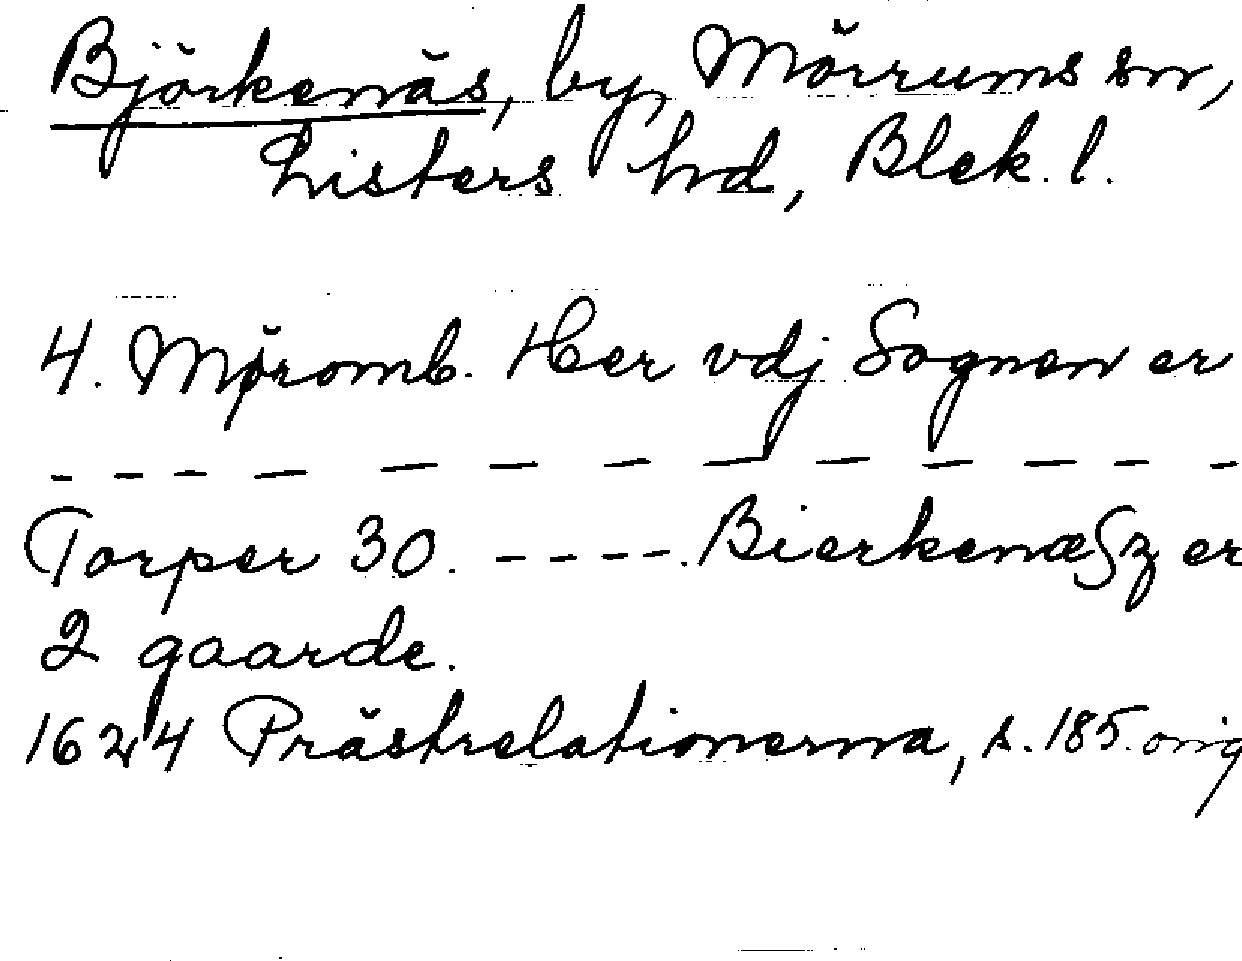 Björkenäs, by, Mörrums sn,
Listers hd, Blek. l.
4. Møromb. Her vdj Sognen er
- - - - - - - - - - - - -
Torper 30. - - - - . Bierkenæſz er
2 gaarde.
1624 Prästrelationerna, s. 185. orig